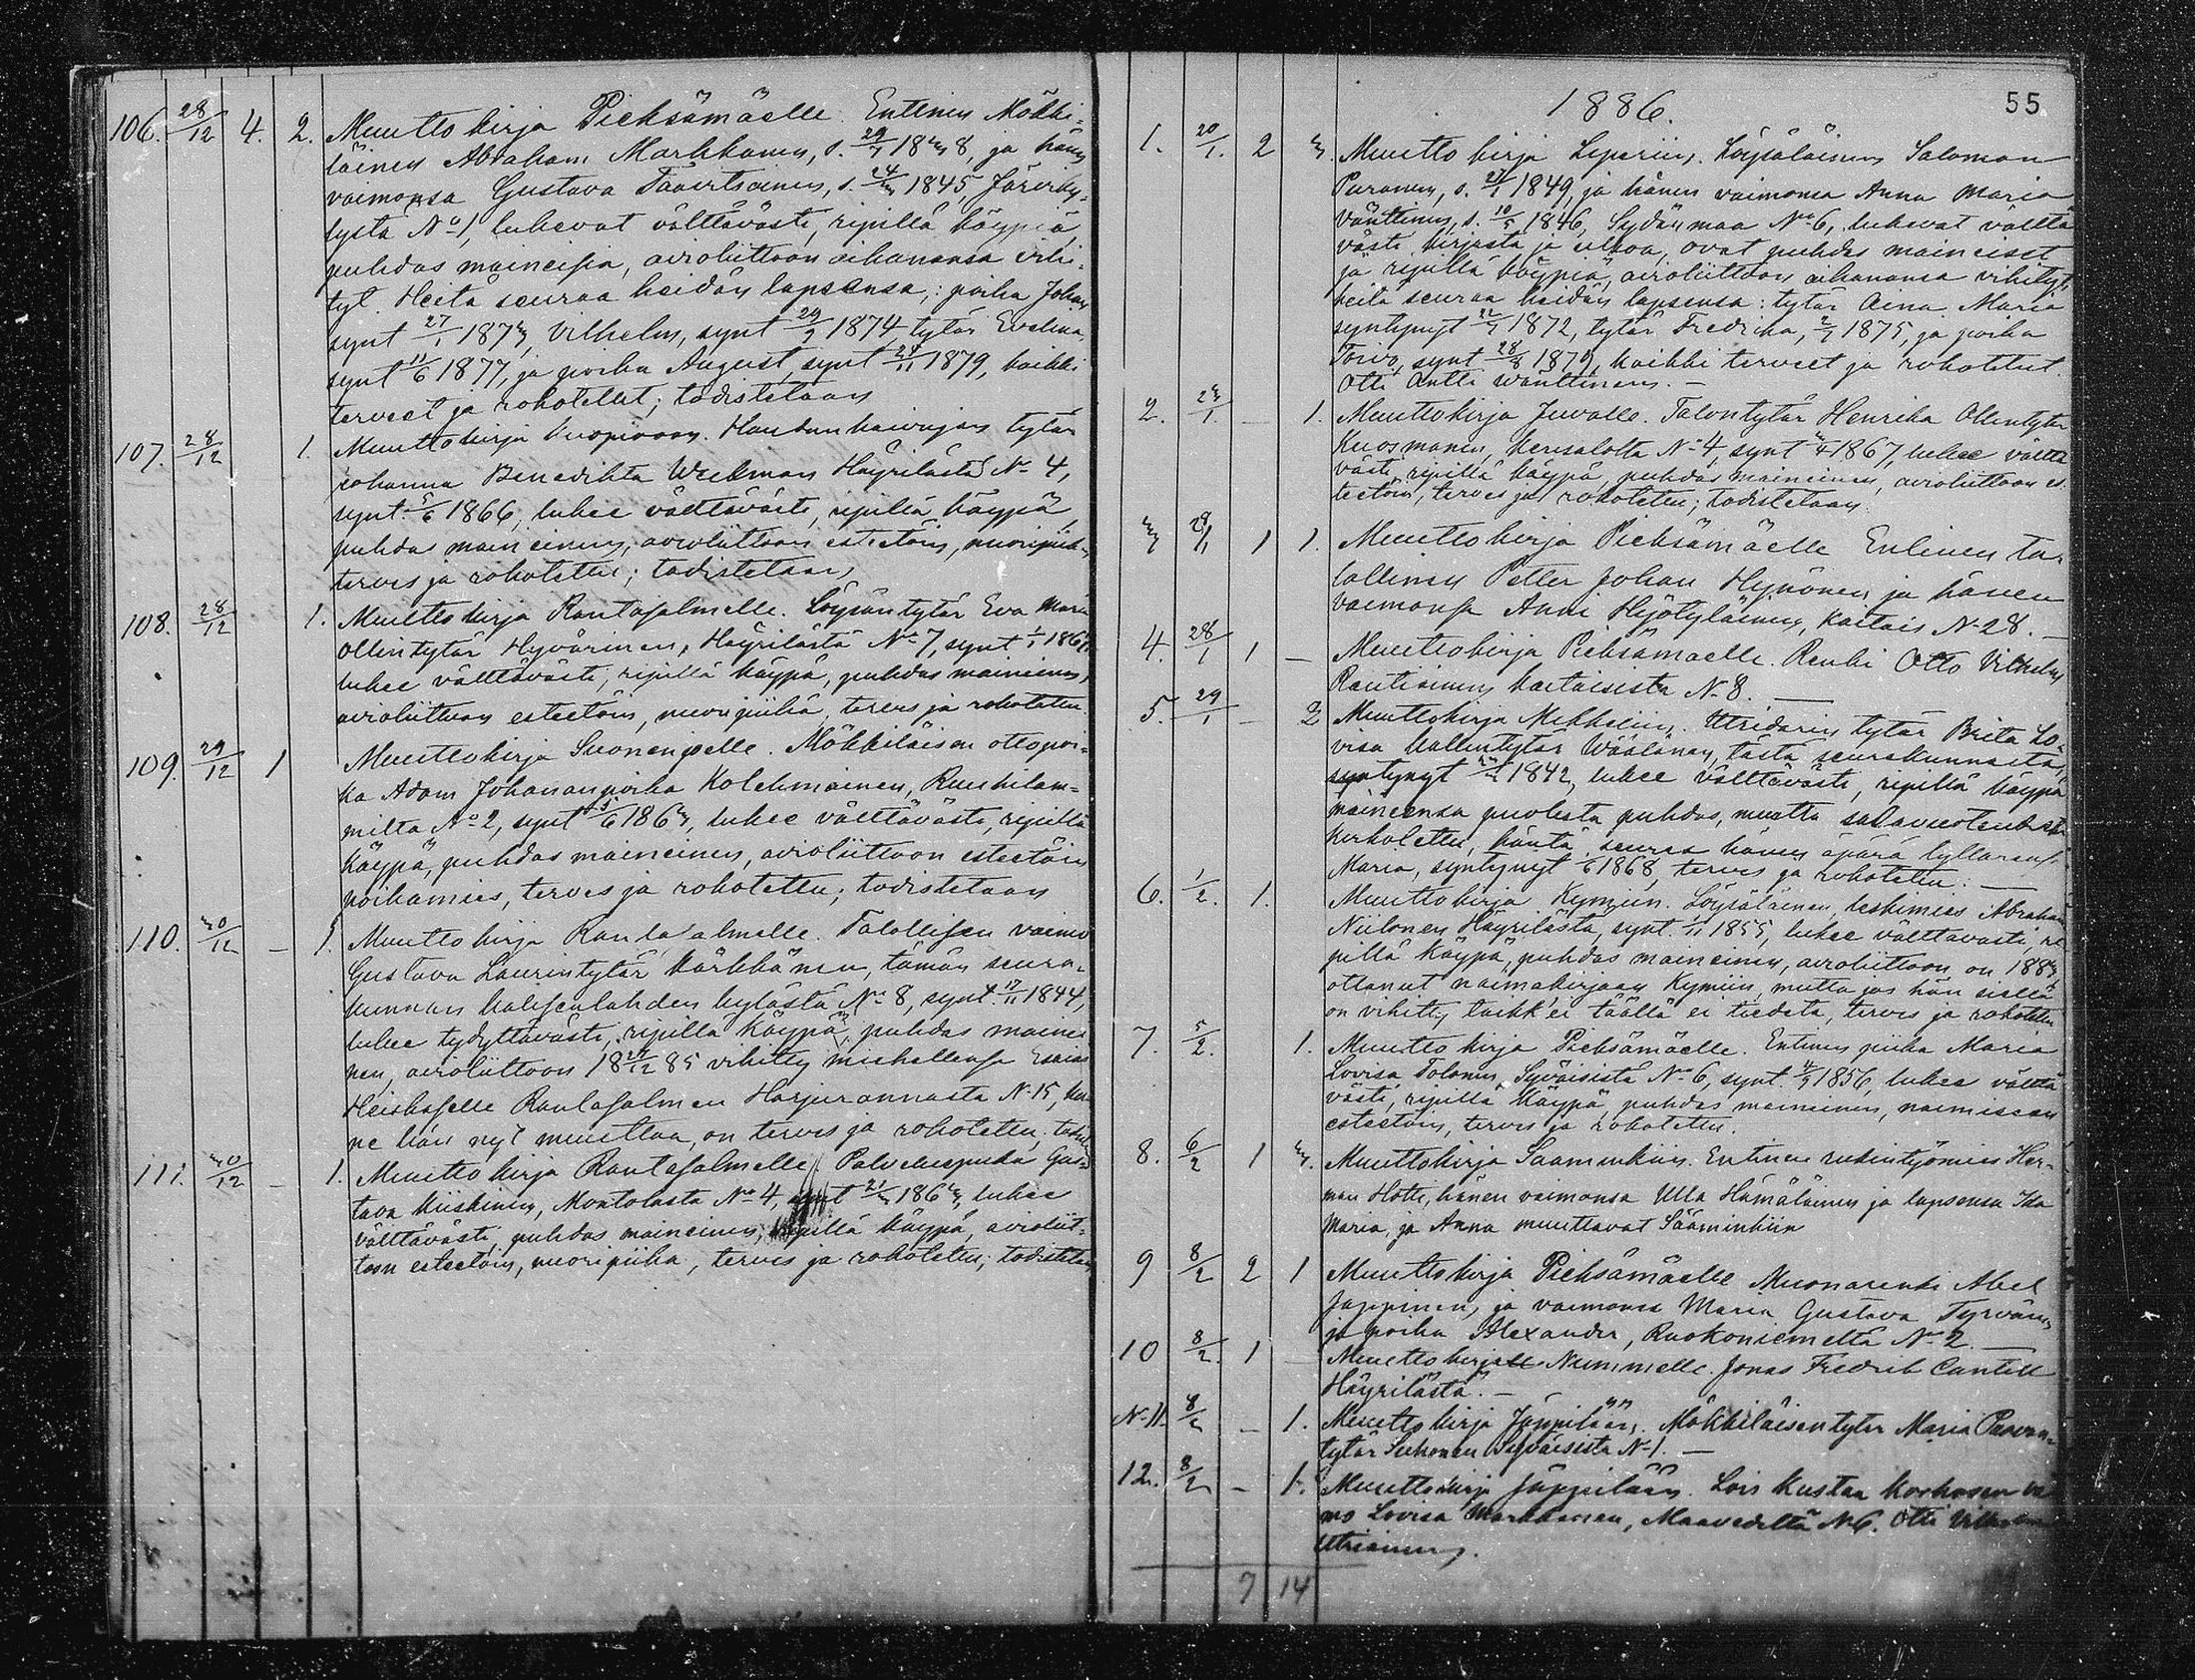 106. 28/12 4. 2. Muuttokirja Pieksämäelle. Entinen Mökki-
läinen Abraham Markkanen, s. 29/7 1838, ja hänen
vaimonsa Gustava Taavitsainen, s. 1845, Järviky-
lystä No 1, lukevat välttävästi, ripillä käypiä,
puhdas maineisia, avioliittoon aikanansa vihi-
tyt. Heitä seuraa heidän lapsensa,: poika Johan,
synt 27/1 1873, Vilhelm, synt 29/9 1874, tytär Evelina,
synt 11/6 1877, ja poika August, synt 24/11 1879, kaikki
terveet ja rokotetut; todistetaan
107. 28/12 1. Muuttokirja Kuopioon. Haudankaivajan tytär
Johanna Benedikta Weckman Häyrilästä No 4,
synt. 5/6 1866, lukee välttävästi, ripillä käypä,
puhdas maineinen, avioliittoon esteetöin, nuoripiika,
terves ja rokotettu; todistetaan
108. 28/12 1. Muuttokirja Rantasalmelle. Löysäntytär Eva Maria
Ollintytär Hyvärinen, Häyrilästä No 7, synt 1/1
lukee välttävästi, ripillä käypä, puhdas maineinen,
avioliittoon esteetöin, nuoripiika, terves ja rokotettu.
109. 29/12 1 Muuttokirja Suonenjoelle. Mökkiläisen ottopoi-
ka Adam Johananpoika Kolehmainen, Ruuhilam-
milta No 2, synt 5/6 1863, lukee välttävästi, ripillä
käypä, puhdas maineinen, avioliittoon esteetöin
poikamies, terves ja rokotettu; todistetaan
110. 30/12 – 1. Muuttokirja Rantasalmelle. Talollisen vaimo
Gustava Laurintytär Kärkkänen, tämän seura-
kunnan kylästä No 8, synt. 17/11 1844,
lukee tydyttävästi, ripillä käypä, puhdas mainei
nen, avioliittoon 18 27/12 85 vihitty miehellensä Esaias
Heiskaselle Rantasalmen Harjurannasta N. 15, kun-
ne hän nyt muuttaa, on terves ja rokotettu,
111. 30/12 – 1. Muuttokirja Rantasalmelle Palveluspiika Gus-
tava Kiiskinen, Montolasta No 4, synt 21/3 1863, lukee
välttävästi, puhdas maineinen, ripillä käypä, avioliit-
toon esteetöin, nuoripiika, terves ja rokotettu; todistetaan
1886. 55
1. 20/1. 2 3. Muuttokirja Liperiin. Löysäläinen Salomon
Puranen, s. 21/1 1849, ja hänen vaimonsa Anna Maria
Vänttinen, s. 10/5 1846, Sydänmaa No 6, lukevat välttä
västi kirjasta ja ulkoa, ovat puhdas maineiset
ja ripillä käypiä, avioliittoon aikanansa vihityt,
heitä seuraa heidän lapsensa: tytär Aina Maria
syntynyt 22/7 1872, tytär Fredrika, 2/7 1875, ja poika
Toivo, synt 28/8 1879, kaikki terveet ja rokotetut.
Otti Antti Wänttinen. –
2. 23/1 – 1. Muuttokirja Juvalle. Talontytär Henrika Ollintytär
Kuosmanen, No 4, synt 3/4 1867, lukee välttä
västi, ripillä käypä, puhdas maineinen, avioliittoon es-
teetöin, terves ja rokotettu; todistetaan.
3 28/1 1 1. Muuttokirja Pieksämäelle Entinen ta-
lollinen Petter Johan Hynönen ja hänen
vaimonsa Anni Hyötyläinen, Kaitais N. 28. –
4. 28/1 1 – Muuttokirja Pieksämäelle. Renki Otto Vilhelm
Rautiainen Kaitaisista N. 8. –
5. 29/1 – 2 Muuttokirja Mikkeliin. Utridarin tytär Brita Lo-
visa Kallentytär Wäälänen, tästä seurakunnasta,
syntynyt 1842, lukee välttävästi, ripillä käypä
maineensa puolesta puhdas, mutta salavuoteudesta
kirkotettu, häntä seuraa hänen äpärä tyttärensä
Maria, syntynyt 1868, terves ja rokotettu: –
6. 1/2. 1. Muuttokirja Kymiin. Löysäläinen, leskimies Abraham
Niilonen Häyrilästä, synt. 1/11 1855, lukee välttävästi, ri-
pillä käypä, puhdas maineinen, avioliittoon on 1883
ottanut naimakirjan Kymiin, mutta jos hän siellä
on vihitty taikk'ei täällä ei tiedetä, terves ja rokotettu
7. 5/2. 1. Muuttokirja Pieksämäelle. Entinen piika Maria
Lovisa Tolonen, Syväisistä No 6, synt. 4/9 1856, lukee välttä
västi, ripillä käypä, puhdas maineinen, naimiseen
esteetöin, terves ja rokotettu.
8. 6/2 1 3. Muuttokirja Sääminkiin. Entinen ruukintyömies Her-
man Hotti, hänen vaimonsa Ulla Hämäläinen ja lapsensa Ida
Maria, ja Anna muuttavat Sääminkiin
9 8/2 2 1 Muuttokirja Pieksämäelle Muonarenki Abel
Jäppinen, ja vaimonsa Maria Gustava Tyrvänen
ja poika Alexander, Ruokoniemeltä No 2. –
10 8/2. 1 – Muuttokirja Nummelle. Jonas Fredrik Cantell
Häyrilästä. –
N. 11 8/2 – 1. Muuttokirja Jäppilään. Mökkiläisentytär Maria Paavon-
tytär Suhonen Syväisistä N. 1. –
12. 8/2 – 1. Muuttokirja Jäppilään. Lois Kustaa Korhosen vai
mo Lovisa Markkanen, Maavedeltä N 6. Otti Vilhelm
Utriainen.
7 14